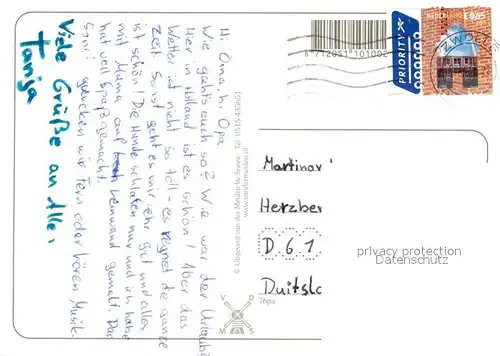 Hi Oma, hi Opa
Wie gehts euch so? Wie war der Urlaub?
Hier in Holland ist es schön! Aber das
Wetter ist nicht so toll - es regnet die ganze
Zeit. Sonst geht es mir sehr gut und alles
ist schön! Die Hunde schlafen nur und ich habe
mit Mama auf Leinwand gemalt. Das
hat viel Spaß gemacht.
Sonst gucken wir Fern oder hören Musik.
Viele Grüße an Alle!
Tanja
© Uitgeverij van der Meulen bv Sneek - Tel. 0515-435661
www.vandermeulen.nl
V D M S
76pz
8 712051 101002
PRIORITY
NEDERLAND €0,65
ZWOLL
Martinav
Herzber
D.61
Duitslc
privacy protection
Datenschutz